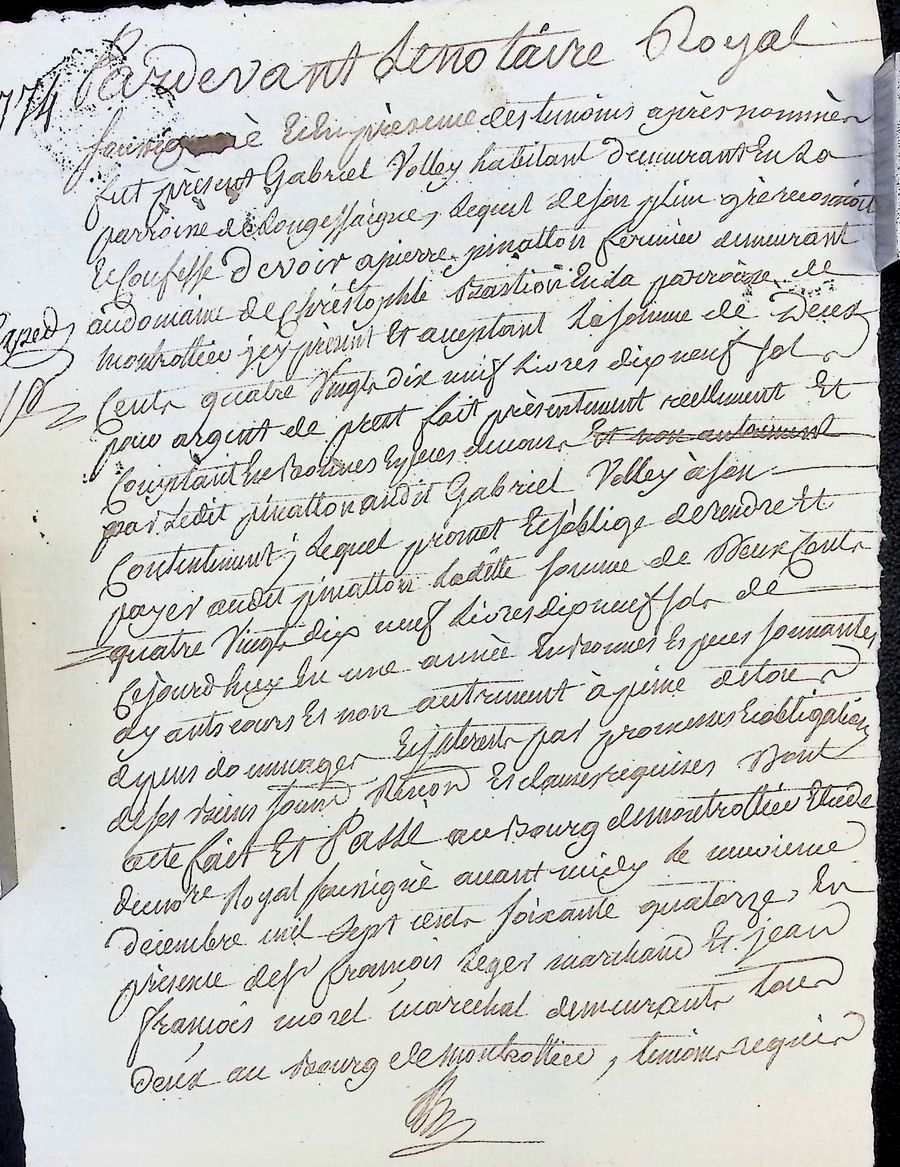 774 Pardevant Le notaire Royal
soussigné Et En présence des temoins après nommèes
fut présent Gabriel Volley habitant demeurant En La
parroisse de Longessaigne, Lequel de son plein grè reconnoit
Et Confesse devoir a pierre pinatton fermier demeurant
au domaine de Christophle Bastion En La parroisse de
montrottier jcy présent Et aceptant La somme de Deux
Cents quatre Vingts dix neuf Livres dix neuf sols
pour argent de prest fait présentement reellement Et
Comptant En Bonnes Especes du cours Et non autrement
par Ledit pinatton audit Gabriel Volley à son
Contentement ; Lequel promet Et s'oblige de rendre Et
payer audit pinatton Ladite somme de Deux Cents
quatre Vingts dix neuf Livres dix neuf sols de
Cejourd'huy En une année En Bonnes Especes sonnantes
ayants cours Et non autrement à peine de tous
depens dommages Et jnterests par promesses Et obligations
de ses Biens soumis Renon Et clauses requises Dont
acte fait Et Passé au Bourg de montrottier Etude
du nore Royal soussigné avant midy Le neuvieme
décembre mil sept cents soixante quatorze, En
présence de sr françois Leger marchand Et jean
françois morel marechal demeurants tous
deux au Bourg de montrottier, temoins requis